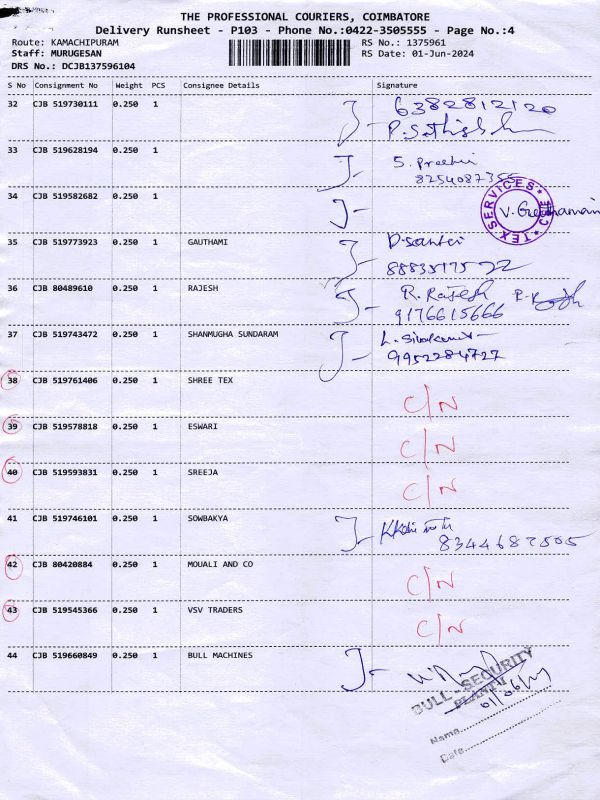 THE PROFESSIONAL COURIERS, COIMBATORE
Delivery Runsheet - P103 - Phone No.:0422-3505555 - Page No.:4
Route: KAMACHIPURAM RS No.: 1375961
Staff: MURUGESAN RS Date: 01-Jun-2024
DRS No.: DCJB137596104
S No Consignment No Weight PCS Consignee Details Signature
32 CJB 519730111 0.250 1 6382812120
33 CJB 519628194 0.250 1 S. Preethi
8254087355
34 CJB 519582682 0.250 1
TEX SERVICES CBE
35 CJB 519773923 0.250 1 GAUTHAMI
36 CJB 80489610 0.250 1 RAJESH R. Rajesh
9176615666
37 CJB 519743472 0.250 1 SHANMUGHA SUNDARAM
9952284727
38 CJB 519761406 0.250 1 SHREE TEX C/N
39 CJB 519578818 0.250 1 ESWARI C/N
40 CJB 519593831 0.250 1 SREEJA C/N
41 CJB 519746101 0.250 1 SOWBAKYA
8344682505
42 CJB 80420884 0.250 1 MOUALI AND CO C/N
43 CJB 519545366 0.250 1 VSV TRADERS C/N
44 CJB 519660849 0.250 1 BULL MACHINES
BULL - SECURITY
Name
Date